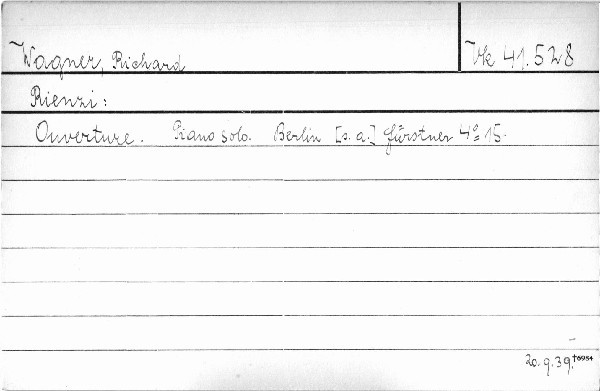 Wagner, Richard
Vk 41.528
Rienzi:
Ouverture. Piano solo. Berlin [s. a.] Fürstner 4º 15.
20.9.39.